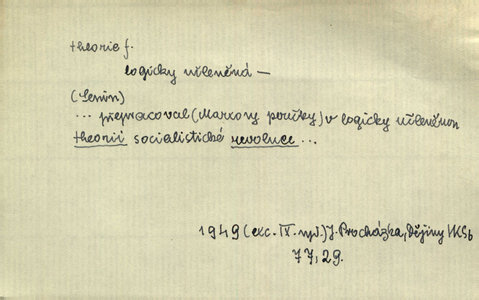 theorie f.
logicky učleněná —
(Lenin)
... přepracoval (Marxovy poučky) v logicky učleněnou
theorii socialistické revoluce ...
1949 (exc. IX. vyd.) J. Procházka, Dějiny VKSb
77, 29.